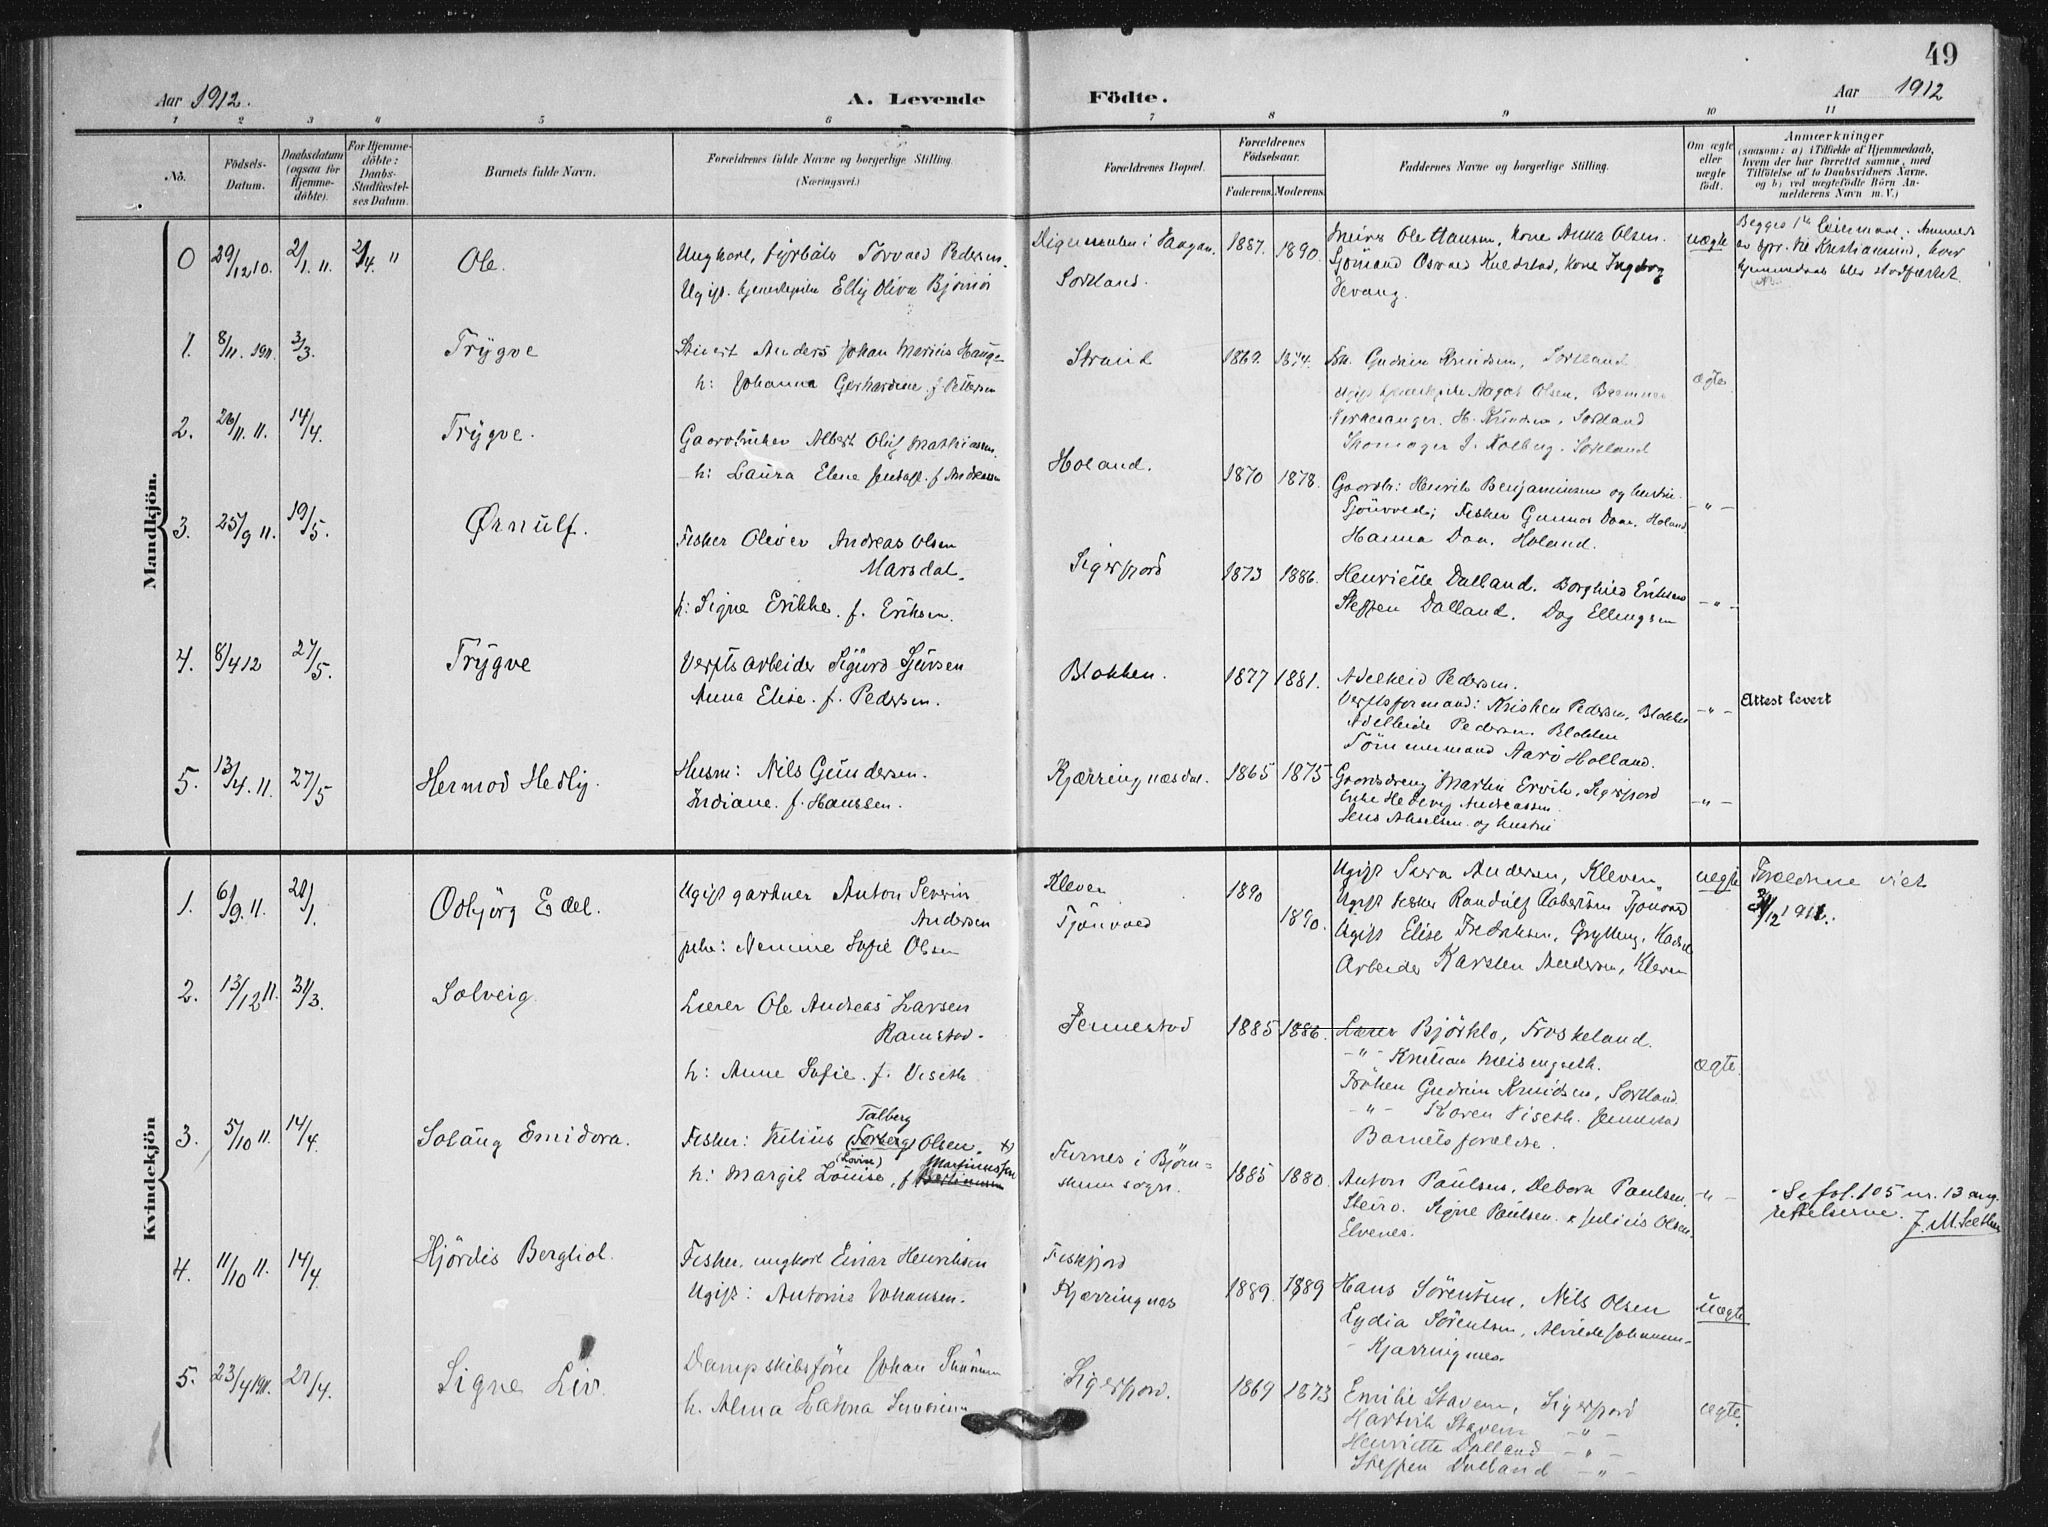 49
Aar 1912.
A. Levende Födte.
Aar 1912
1 2 3 4 5 6 7 8 9 10 11
No.
Födsels-
Datum.
Daabsdatum
(ogsaa for
Hjemme-
döbte).
For Hjemme-
döbte:
Daabs-
Stadfæstel-
ses Datum.
Barnets fulde Navn.
Forældrenes fulde Navne og borgerlige Stilling.
(Næringsvei.)
Forældrenes Bopæl.
Forældrenes
Födselsaar.
Faderens. Moderens.
Faddernes Navne og borgerlige Stilling.
Om ægte
eller
uægte
födt.
Anmærkninger
(saasom: a) i Tilfælde af Hjemmedaab,
hvem der har forrettet samme, med
Tilföielse af to Daabsvidners Navne,
og b) ved uægtefödte Börn An-
melderens Navn m. V.)
Mandkjön.
0 29/12 10. 2/1. 11. 2/4. " Ole.
Ungkarl, fyrböter Torvald Pedersen.
Ugift. Elly Oliva
i Vaagan.
Sortland.
1887. 1890.
Ole Hansen, Kone Anna Olsen.
Sjömand Kone Ingeborg
uægte
1. 8/11. 1911. 3/3. Trÿgve
Anders Johan Marius Hauge
h: Johanna Gerhardine f. Pettersen
Strand
1869. 1874.
Frk. Gudrun Knudsen, Sortland
Ugift Olsen,
Kirkesanger. H. Knudsen, Sortland
Skomager J. Kolberg. Sortland
ægte
2. 26/11. 11. 14/4. Trÿgve.
Gaardbruker Albert Oluf Mathiassen.
h: Laura Elene f. Andreassen
Holand.
1870 1878.
Gaardbr: Henrik Benjaminsen og hustru
Tjönvold; Fisker Gunnar Daa, Holand
Hanna Daa. Holand.
- " -
3. 25/9 11. 19/5. Ørnulf.
Fisker Oliver Andreas Olsen
Marsdal.
h: Signe Erikke. f. Eriksen.
Sigerfjord
1873 1886.
Henriette Dalland. Borghild Eriksen
Steffen Dalland. Dag Ellingsen
- " -
4. 8/4 12 27/5. Trÿgve
Verftsarbeider Sigurd Sjursen
Anna Elise. f. Pedersen.
Blokken.
1877 1881.
Adelheid Pedersen.
Verftsformand: Kristen Pedersen, Blokken
Adelheide Pedersen. Blokken
Tömmermand Aarö Holland.
- " -
Attest levert
5. 13/4. 11. 27/5 Hermod Hedly.
Husm: Nils Gundersen.
Indiane. f. Hanssen.
Kjærringnæsdal.
1865 1875
Gaardsdreng Martin Ervik, Sigerfjord
Enke Hedevig Andreassen.
Jens Akselsen og hustru
- " -
Kvindekjön
1. 6/9. 11. 21/1. Odbjörg Edel.
Ugift gartner Anton Severin
Andersen
pike: Nemine Sofie Olsen
Kleven
Tjönvold
1890
1890.
Ugift Andersen, Kleven
Ugift fisker Randulf Robertsen Tjönvold
Ugift Elise Fredriksen, Grytting, Hadsel
Arbeider Karsten Andersen, Kleven
uægte
Forældrene viet
31/12 1911.
2. 13/12 11. 31/3. Solveig.
Lærer Ole Andreas Larsen
Ramstad.
h: Anne Sofie. f. Viseth
Jennestad
1885 1886.
Lærer Björklo, Froskeland.
- " - Kristian Meisingseth.
Fröken Gudrun Knudsen, Sortland.
- " - Karen Viseth. Jennestad
Barnets forældre.
ægte.
3. 5/10 11. 14/4. Solaug Emidora.
Talberg
Fisker: Julius (Forberg) Olsen. +)
(Lovise) Martinussen
h: Margit Louise, f.
Furnes i Björn-
skinn sogn.
1885 1880.
Anton Paulsen, Debora Paulsen.
Steiro. Signe Paulsen. Julius Olsen,
Elvenes.
- " -
Se fol. 105 nr. 13 ang.
rettelserne. J. M. Sæther
4. 11/10 11. 14/4. Hjördis Bergliot.
Fisker, ungkarl Einar Henriksen
Ugift: Antonie Johansen.
Fiskfjord
Kjærringnes
1889. 1889
Hans Sörensen, Nils Olsen
Lydia Sörensen, Alvilde Johansen-
Kjærringnes.
uægte
5. 23/4 1911. 27/4. Signe Liv.
Dampskibsförer Johan
h. Alma
Sigerfjord.
1869 1873
Emilie Stavem, Sigerfjord
Hartvik Stavem - " -
Henriette Dalland - " -
Steffen Dalland - " -
ægte.